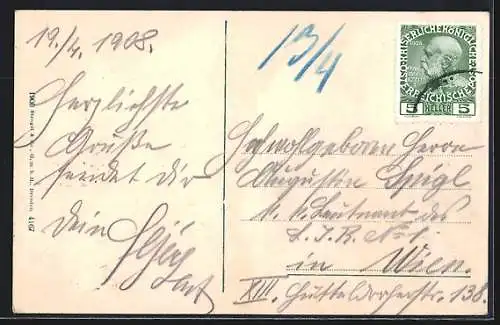 19./4. 1908.
Herzlichste
Grüße
sendet dir
Dein
13/4
KAISERLICHE KÖNIGLICHE
ÖSTERREICHISCHE POST
5 HELLER 5
Hochwohlgeboren Herrn
Augustin
k. k. Leutnant des
L. I. R. No 1.
in Wien.
XIII. Hütteldorferstr. 138.
1908 Dresden 4167